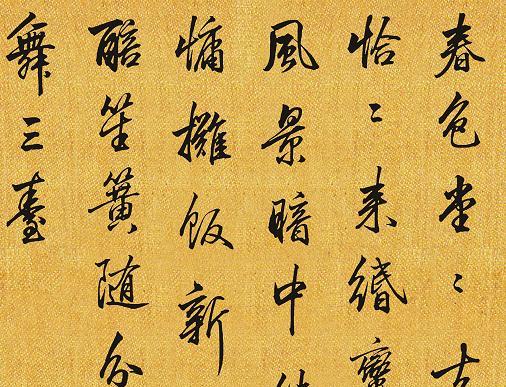 春色堂〻
恰〻来緡蠻
風景暗中
慵攤飯新
醅笙簧随分
舞三臺